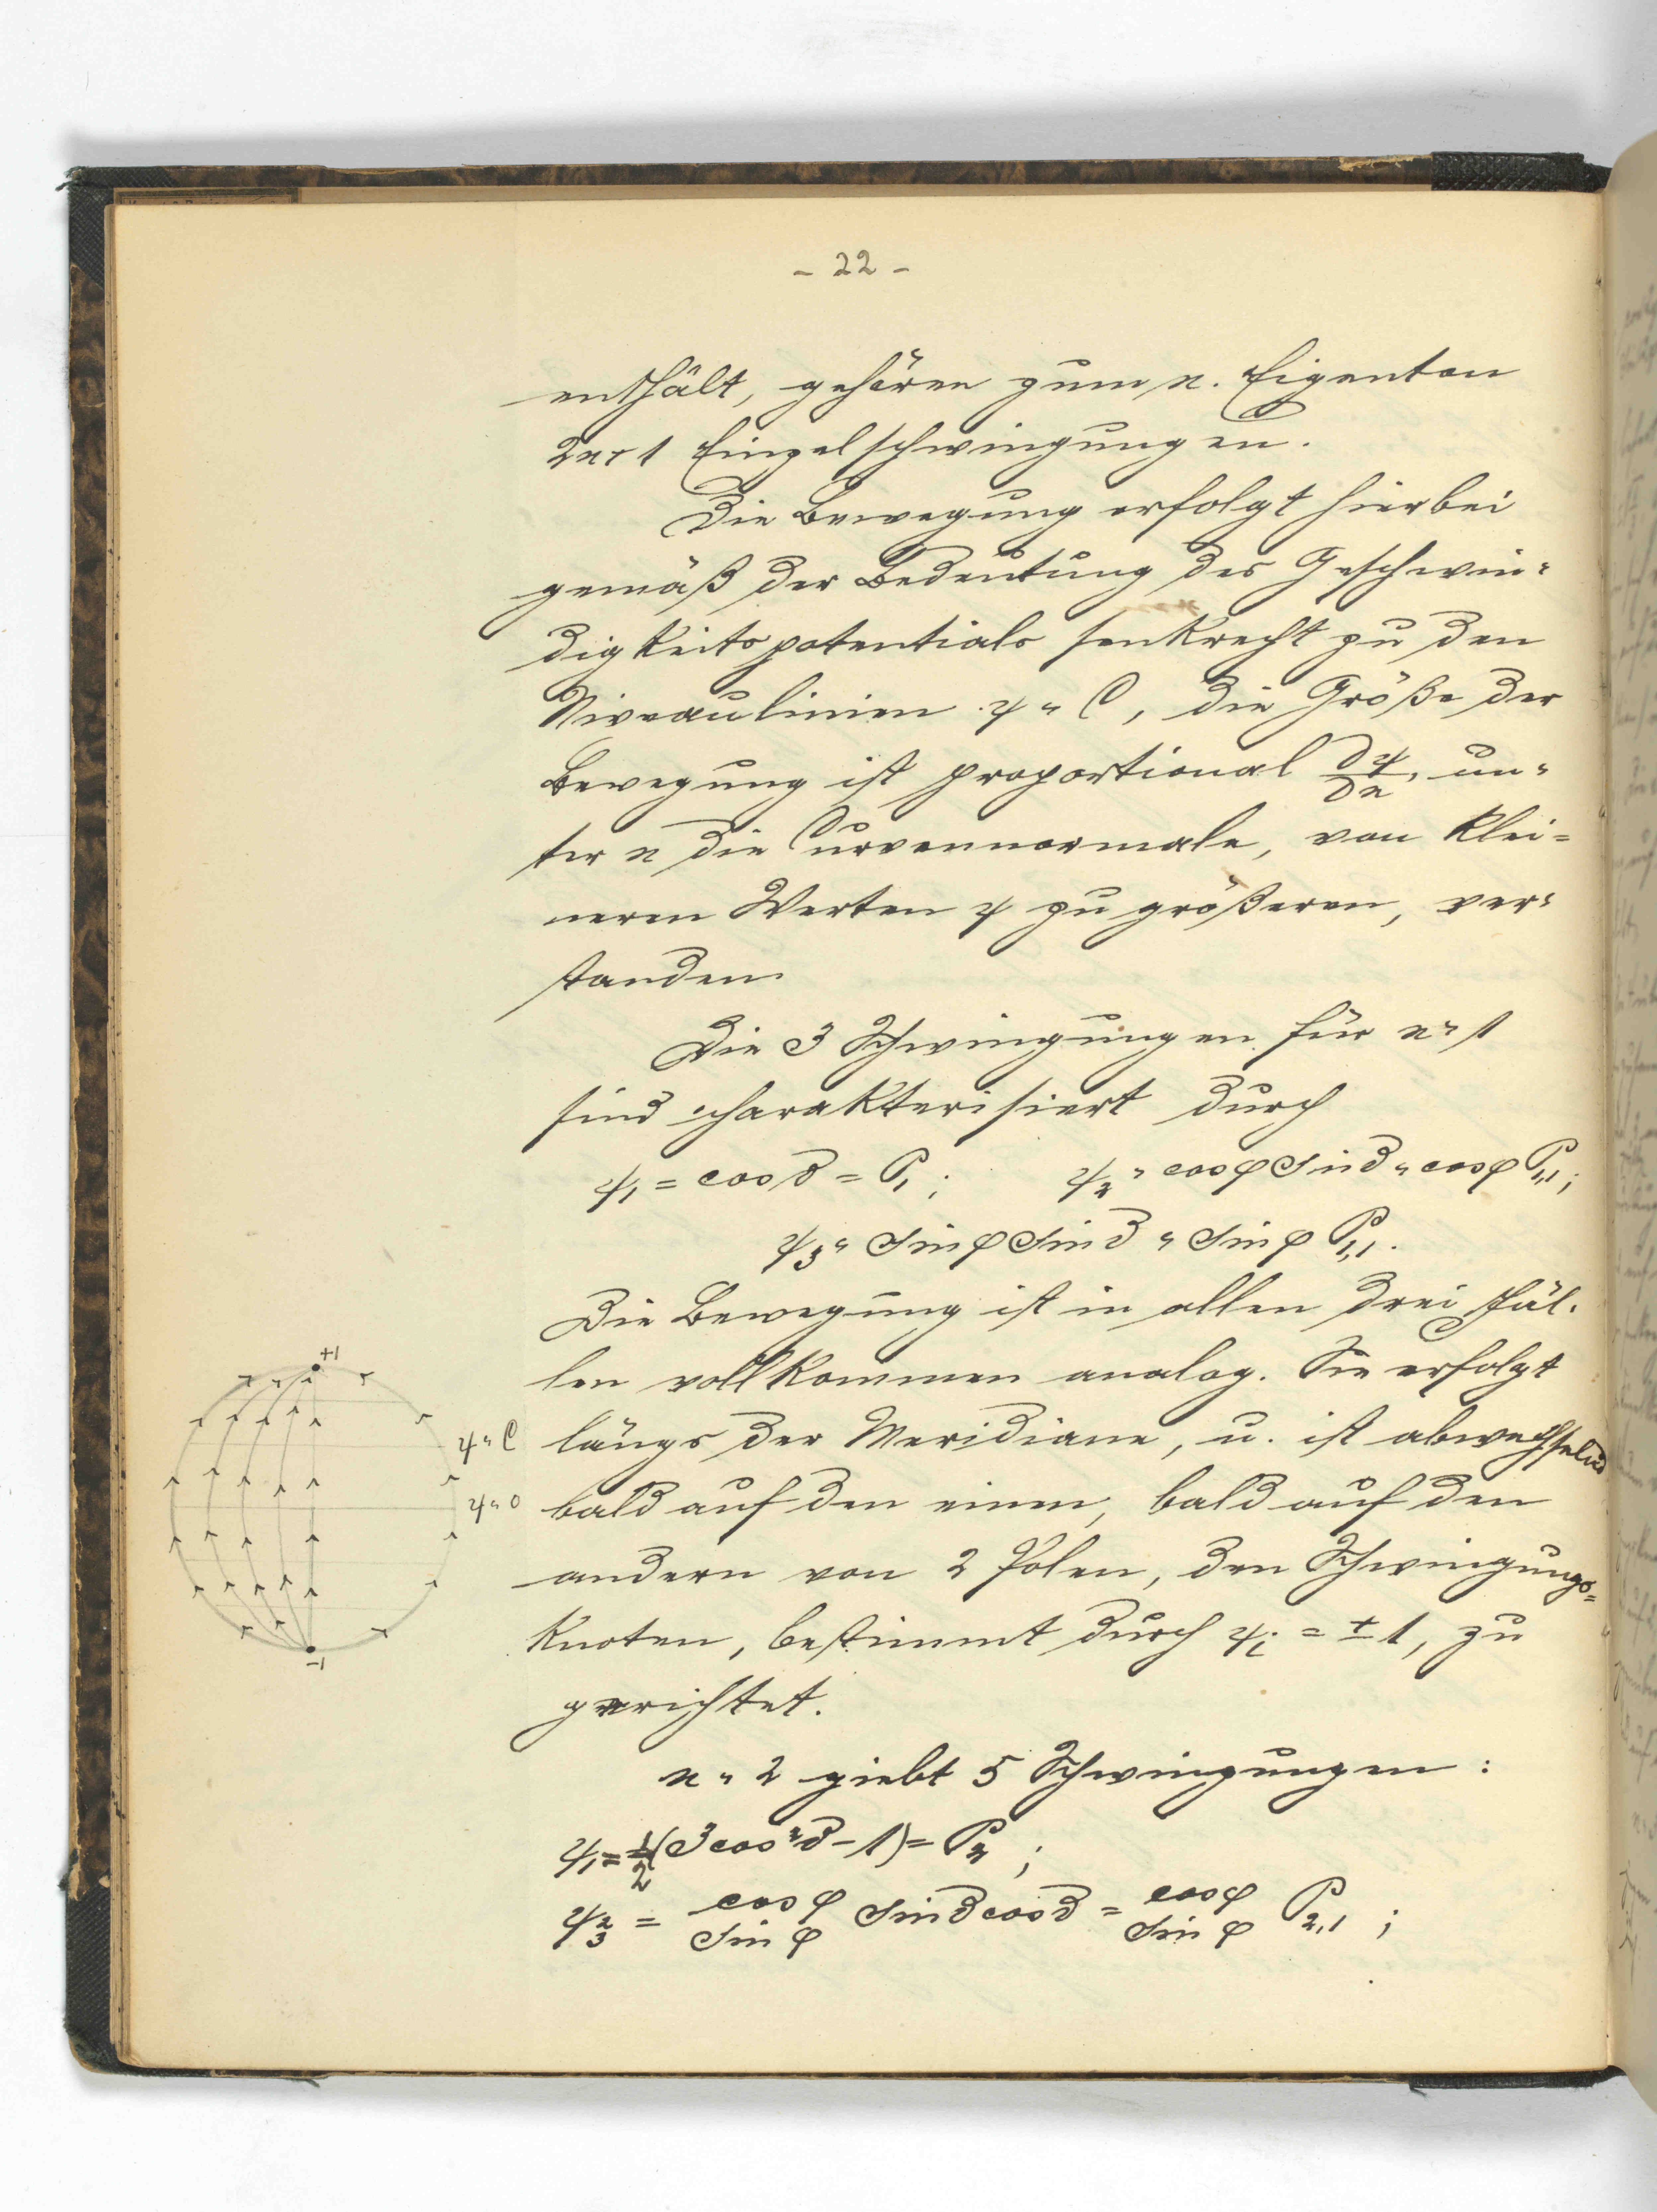 - 22 -
enthält, gehören zum n. Eigenton
2n+1 Einzelschwingungen.
Die Bewegung erfolgt hierbei
gemäß der Bedeutung des Geschwin=
digkeitspotentials senkrecht zu den
Niveaulinien ψ = C, die Größe der
Bewegung ist proportional ∂ψ/∂n, un=
ter n die Curvennormale, von klei=
neren Werten ψ zu größeren, ver=
standen.
Die 3 Schwingungen für n=1
sind charakterisiert durch
ψ₁ = cos ϑ = P₁ ; ψ₂ = cos φ sin ϑ = cos φ P₁,₁ ;
ψ₃ = sin φ sin ϑ = sin φ P₁,₁.
Die Bewegung ist in allen drei Fäl=
len vollkommen analog. Sie erfolgt
längs der Meridiane, u. ist abwechselnd
bald auf den einen, bald auf den
andern von 2 Polen, den Schwingungs=
knoten, bestimmt durch ψᵢ = ± 1, zu
gerichtet.
n = 2 giebt 5 Schwingungen :
ψ₁ = ½(3 cos²ϑ - 1) = P₂ ;
ψ₂ ₃ = cos φ sin φ sin ϑ cos ϑ = cos φ sin φ P₂,₁ ;
+1
ψ = C
ψ = 0
-1